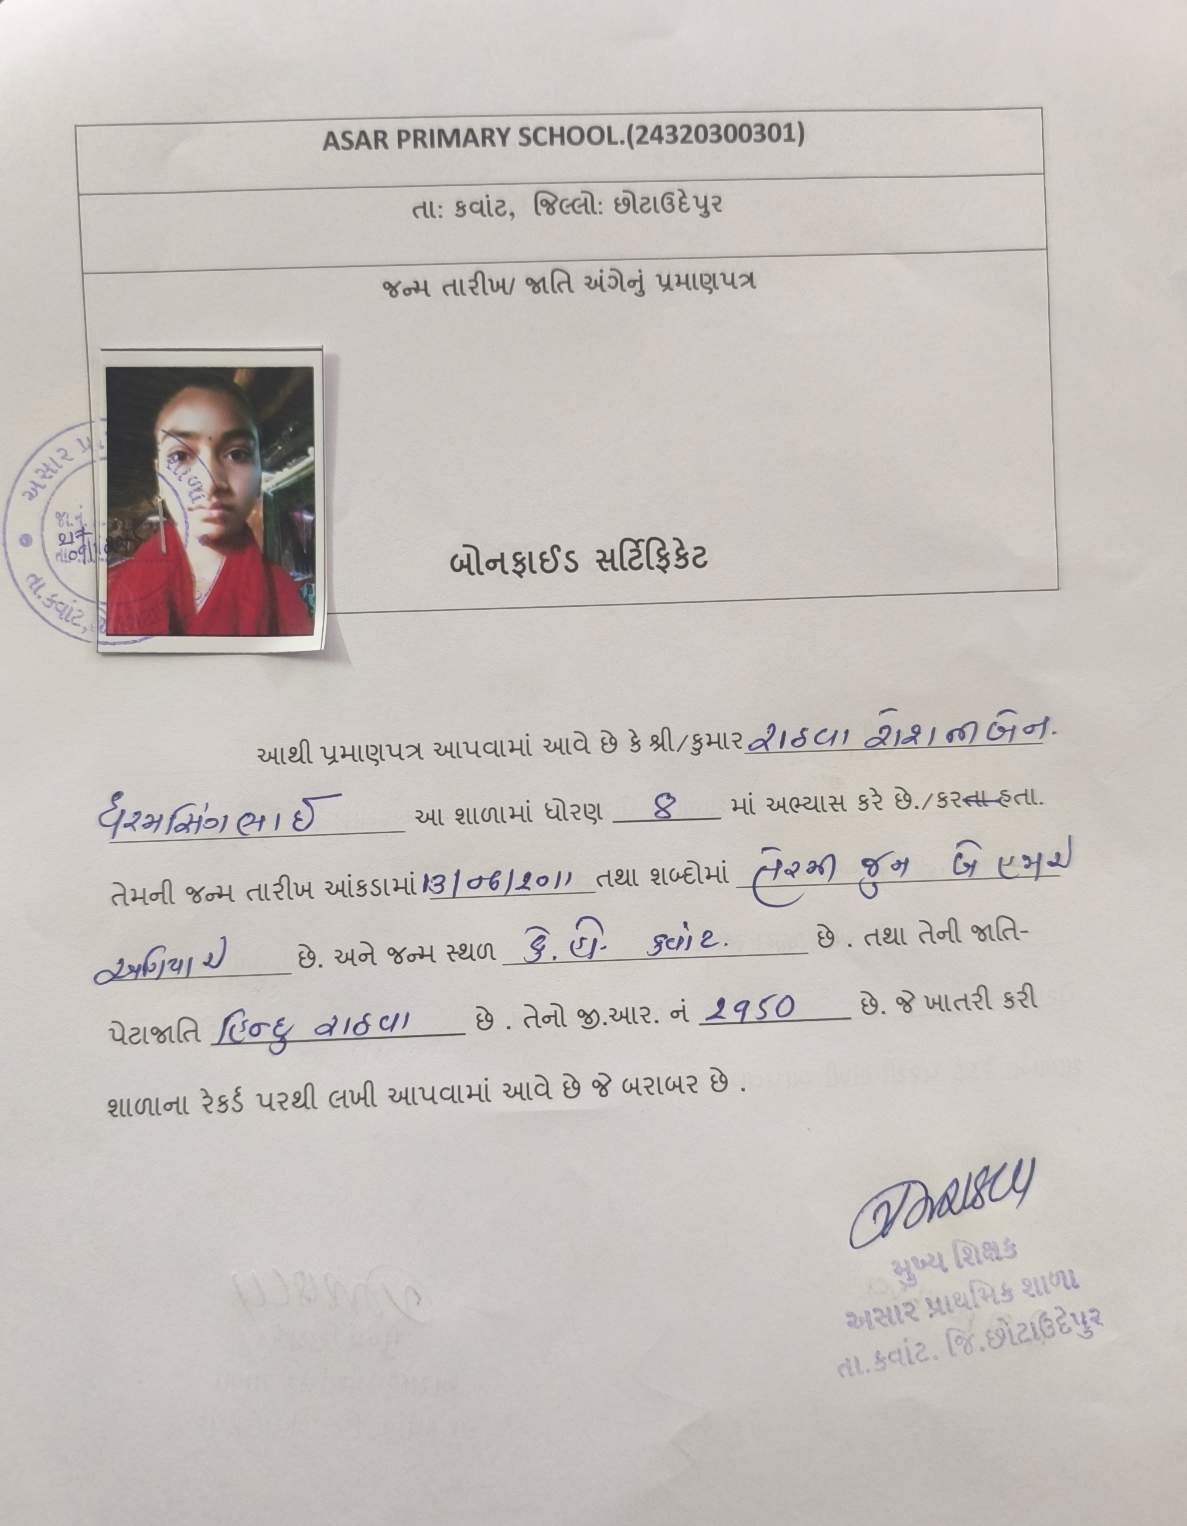 ASAR PRIMARY SCHOOL.(24320300301)
તા: કવાંટ, જિલ્લો: છોટાઉદેપુર
જન્મ તારીખ/ જાતિ અંગેનું પ્રમાણપત્ર
અસાર પ્રા શાળા
તા.કવાંટ,
બોનફાઈડ સર્ટિફિકેટ
આથી પ્રમાણપત્ર આપવામાં આવે છે કે શ્રી/કુમાર રાઠવા રોશનીબેન.
ધરમસિંગભાઈ આ શાળામાં ધોરણ 8 માં અભ્યાસ કરે છે./કરતા હતા.
તેમની જન્મ તારીખ આંકડામાં 13/06/2011 તથા શબ્દોમાં તેરમી જુન બે હજાર
અગિયાર છે. અને જન્મ સ્થળ કવાંટ. છે . તથા તેની જાતિ-
પેટાજાતિ હિન્દુ રાઠવા છે . તેનો જી.આર. નં 2950 છે. જે ખાતરી કરી
શાળાના રેકર્ડ પરથી લખી આપવામાં આવે છે જે બરાબર છે .
મુખ્ય શિક્ષક
અસાર પ્રાથમિક શાળા
તા.કવાંટ. જિ.છોટાઉદેપુર